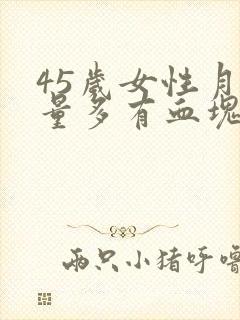 45歲女性月
量多有血塊
两只小猪呼噜